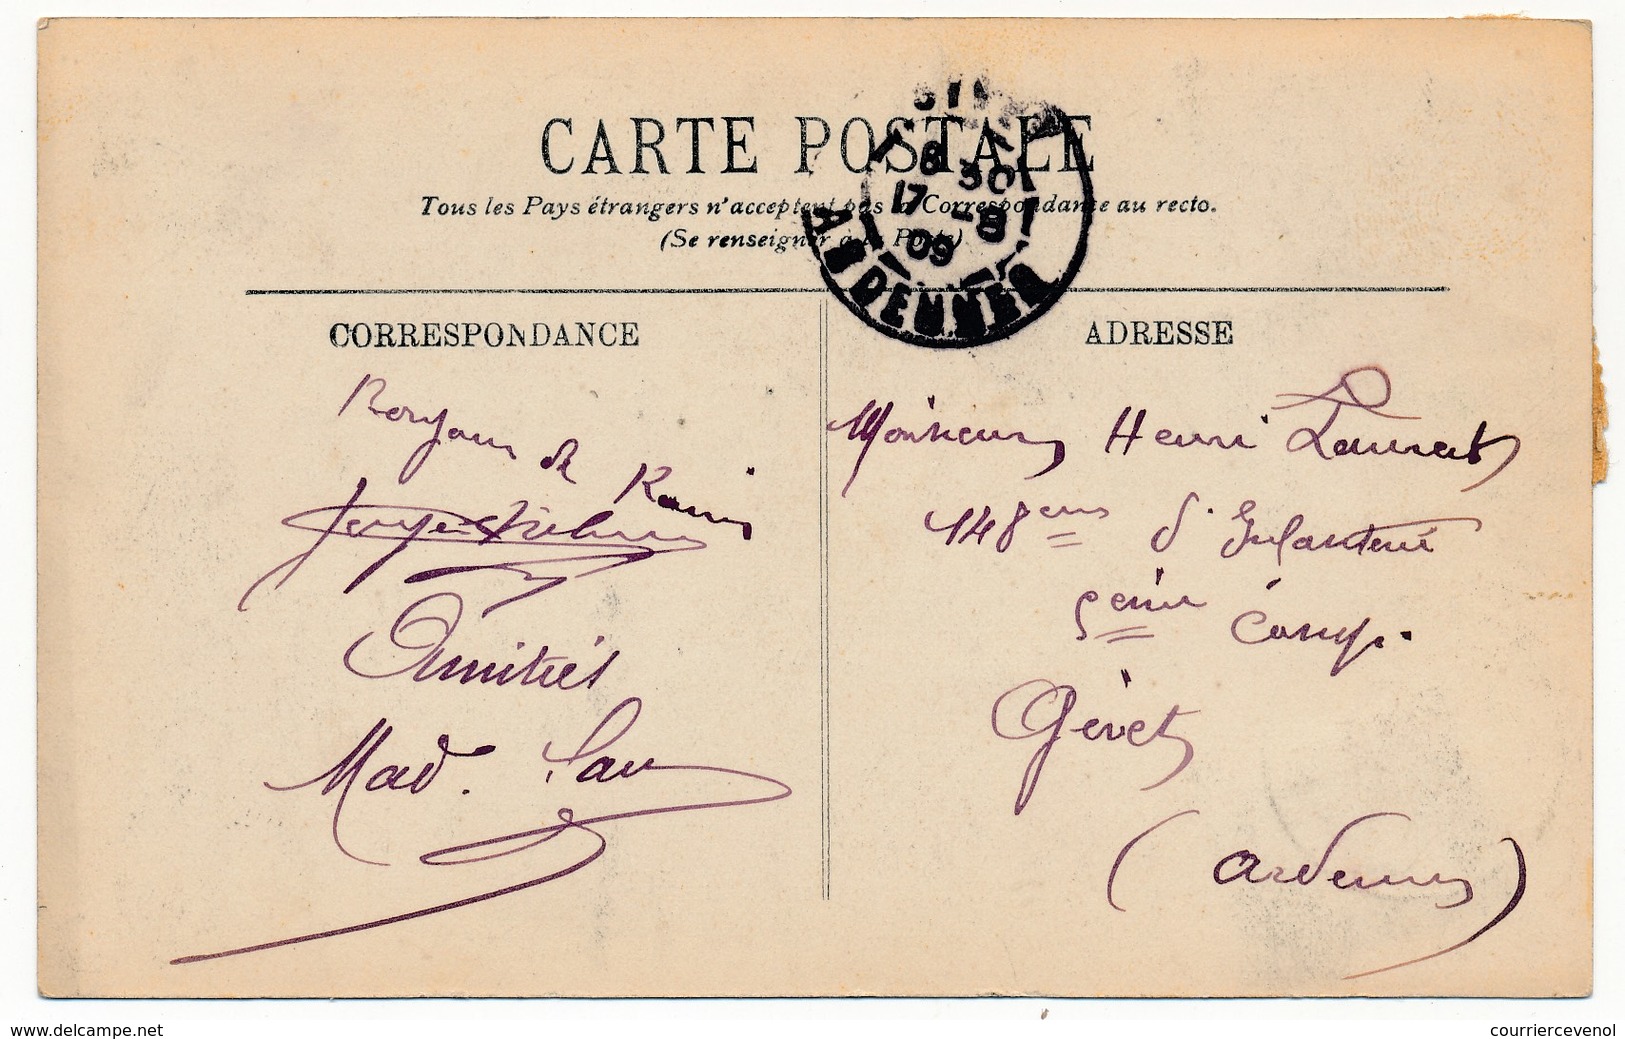 CARTE POSTALE
Tous les Pays étrangers n'acceptent pas la Correspondance au recto.
(Se renseigner à la Poste)
6 30
17 - 8
09
ARDENNES
CORRESPONDANCE
Bonjour de Paris
Amitiés
Mad. Lau
ADRESSE
Monsieur Henri Laurent
148eme d'Infanterie
5eme Comp.
Givet
(Ardennes)
www.delcampe.net
courriercevenol